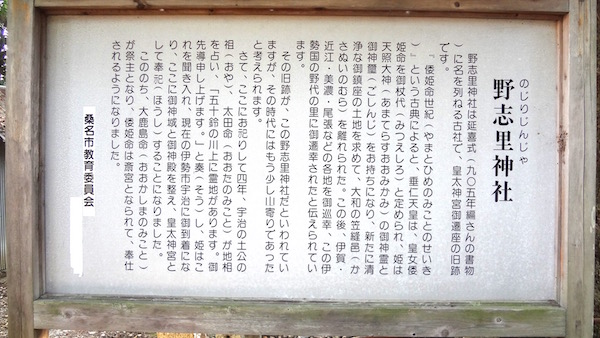 のじりじんじゃ
野志里神社
野志里神社は延喜式(九〇五年編さんの書物
)に名を列ねる古社で、皇太神宮御遷座の旧跡
です。
「倭姫命世紀(やまとひめのみことのせいき
)」という古典によると、垂仁天皇は、皇女倭
姫命を御杖代(みつえしろ)と定められ、姫は
天照大神(あまてらすおおみかみ)の御神霊と
御神璽(ごしんじ)をお持ちになり、新たに清
浄な御鎮座の土地を求めて、大和の笠縫邑(か
さぬいのむら)を離れられた。この後、伊賀・
近江・美濃・尾張などの各地を御巡幸、この伊
勢国の野代の里に御遷幸されたと伝えられてい
ます。
その旧跡が、この野志里神社だといわれてい
ますが、その時代にはもう少し山寄りであった
と考えられます。
さて、ここにお祀りして四年、宇治の土公の
祖(おや)、太田命(おおたのみこと)が地相
を占い、「五十鈴の川上に霊地があります。御
先導申し上げます。」と奏(そう)し、姫はこ
れを聞き入れ、現在の伊勢市宇治に御到着にな
り、ここに御神域と御神殿を整え、皇太神宮と
して奉祀(ほうし)することになりました。
このゝち、大鹿島命(おおかしまのみこと)
が祭主となり、倭姫命は斎宮となられて、奉仕
されるようになりました。
桑名市教育委員会